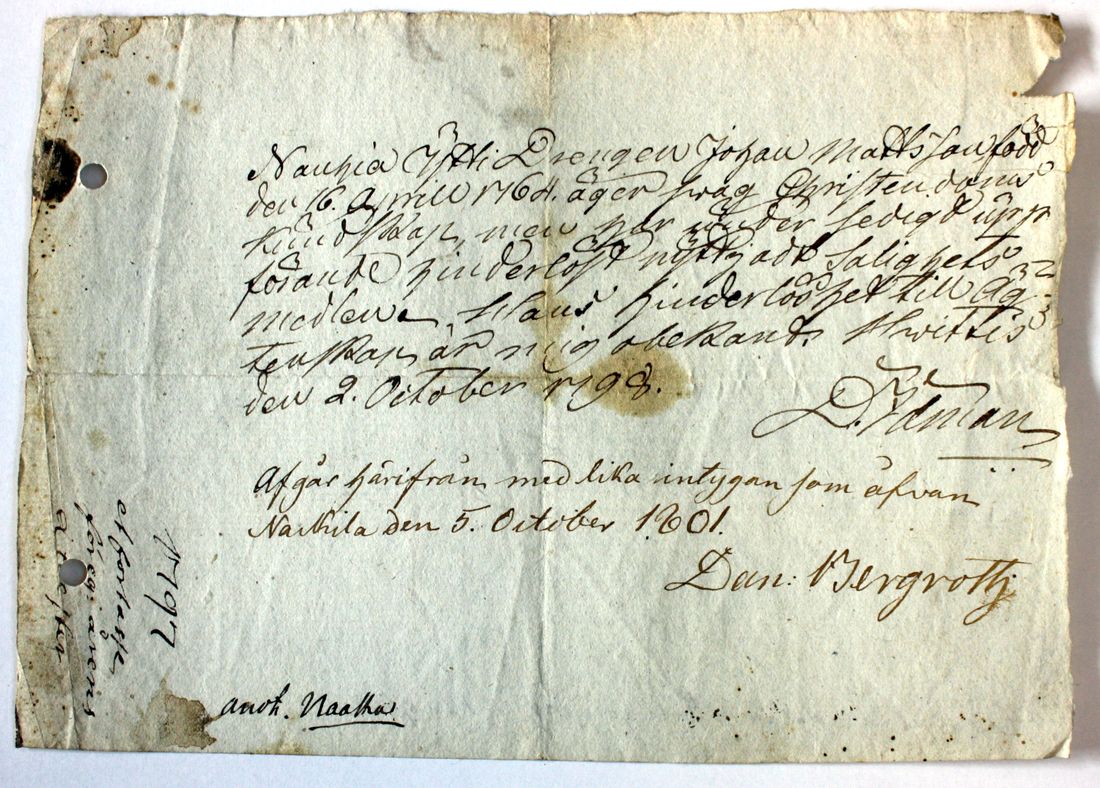 Nanhia Yttli Drengen Johan Matts Son född
den 16. Aprill 1764. äger swag Christendoms
kundskap, men har under sedigt upp
förande hinderlöst nyttjadt Salighets
medlen. Hans hinderlöshet till Äg
tenskap är mig obekant. Hwittis
den 2. October 1798.
D. Idman
Afgår härifrån med lika intygan som åfvan
Nackila den 5. October 1801.
Dan: Bergroth
anoh. Naakka
1797
et fortasse
föreg: årens
attester